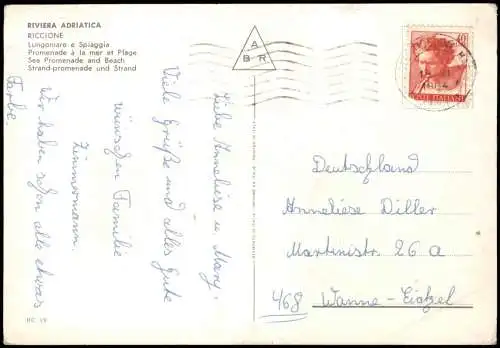 RIVIERA ADRIATICA
RICCIONE
Lungomare e Spiaggia
Promenade à la mer et Plage
See Promenade and Beach
Strand-promenade und Strand
A
B R
40
POSTE ITALIANE
Liebe Anneliese u. Mary.
Viele Grüße und alles Gute
wünschen Familie
Zimmermann.
Wir haben schon alle etwas
Farbe.
Deutschland
Anneliese Diller
Martinistr 26 a
468 Wanne-Eickel
RC 19